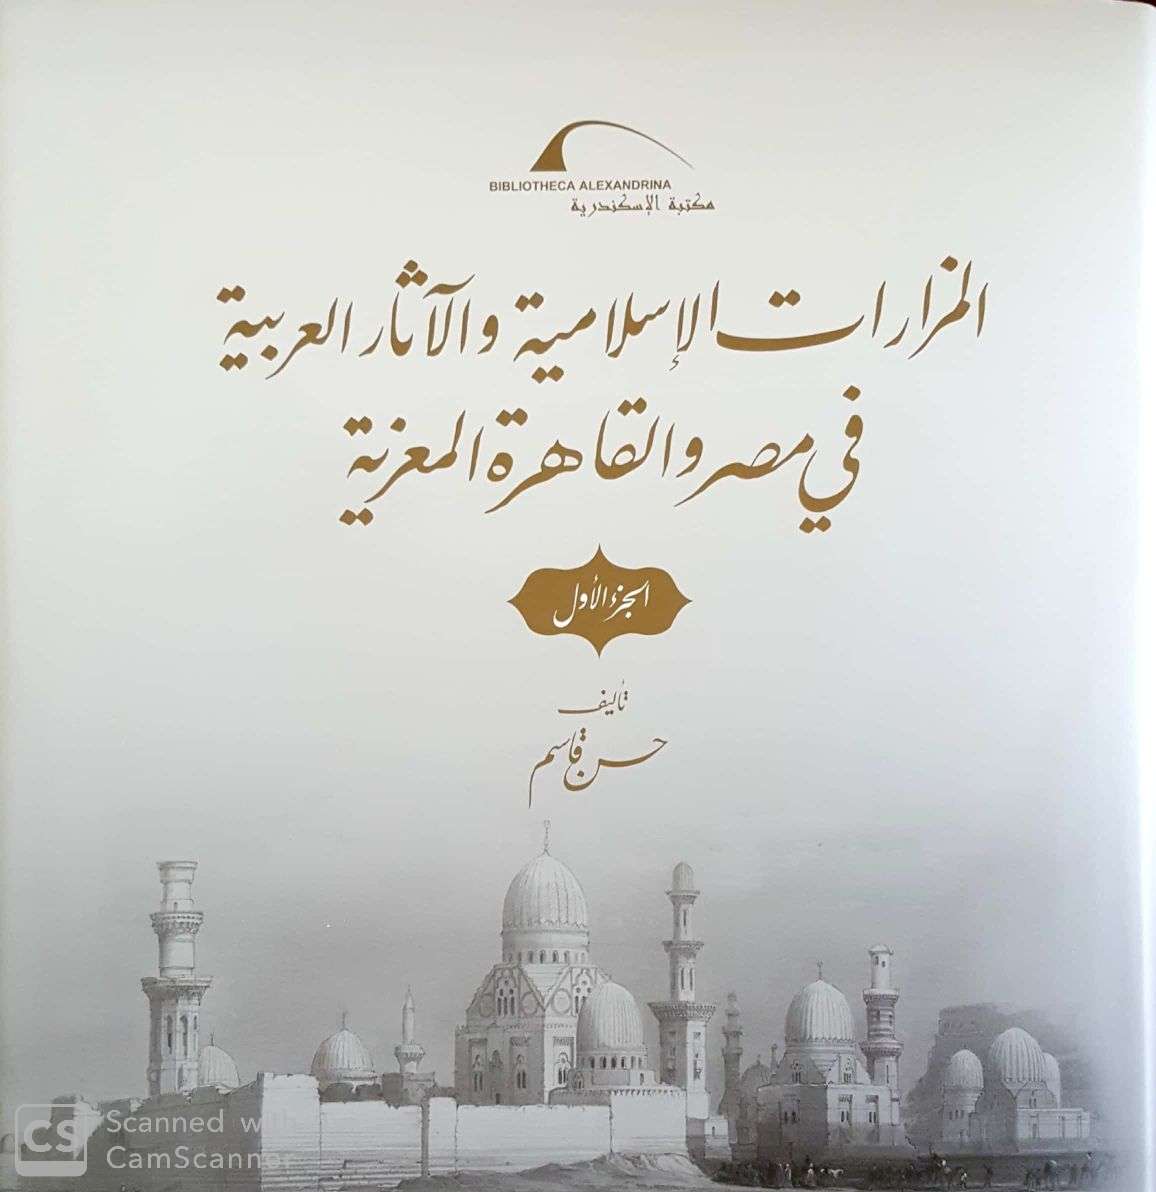 BIBLIOTHECA ALEXANDRINA
مكتبة الإسكندرية
المزارات الإسلامية والآثار العربية
في مصر والقاهرة المعزية
الجزء الأول
تأليف
حسن قاسم
CS Scanned with
CamScanner